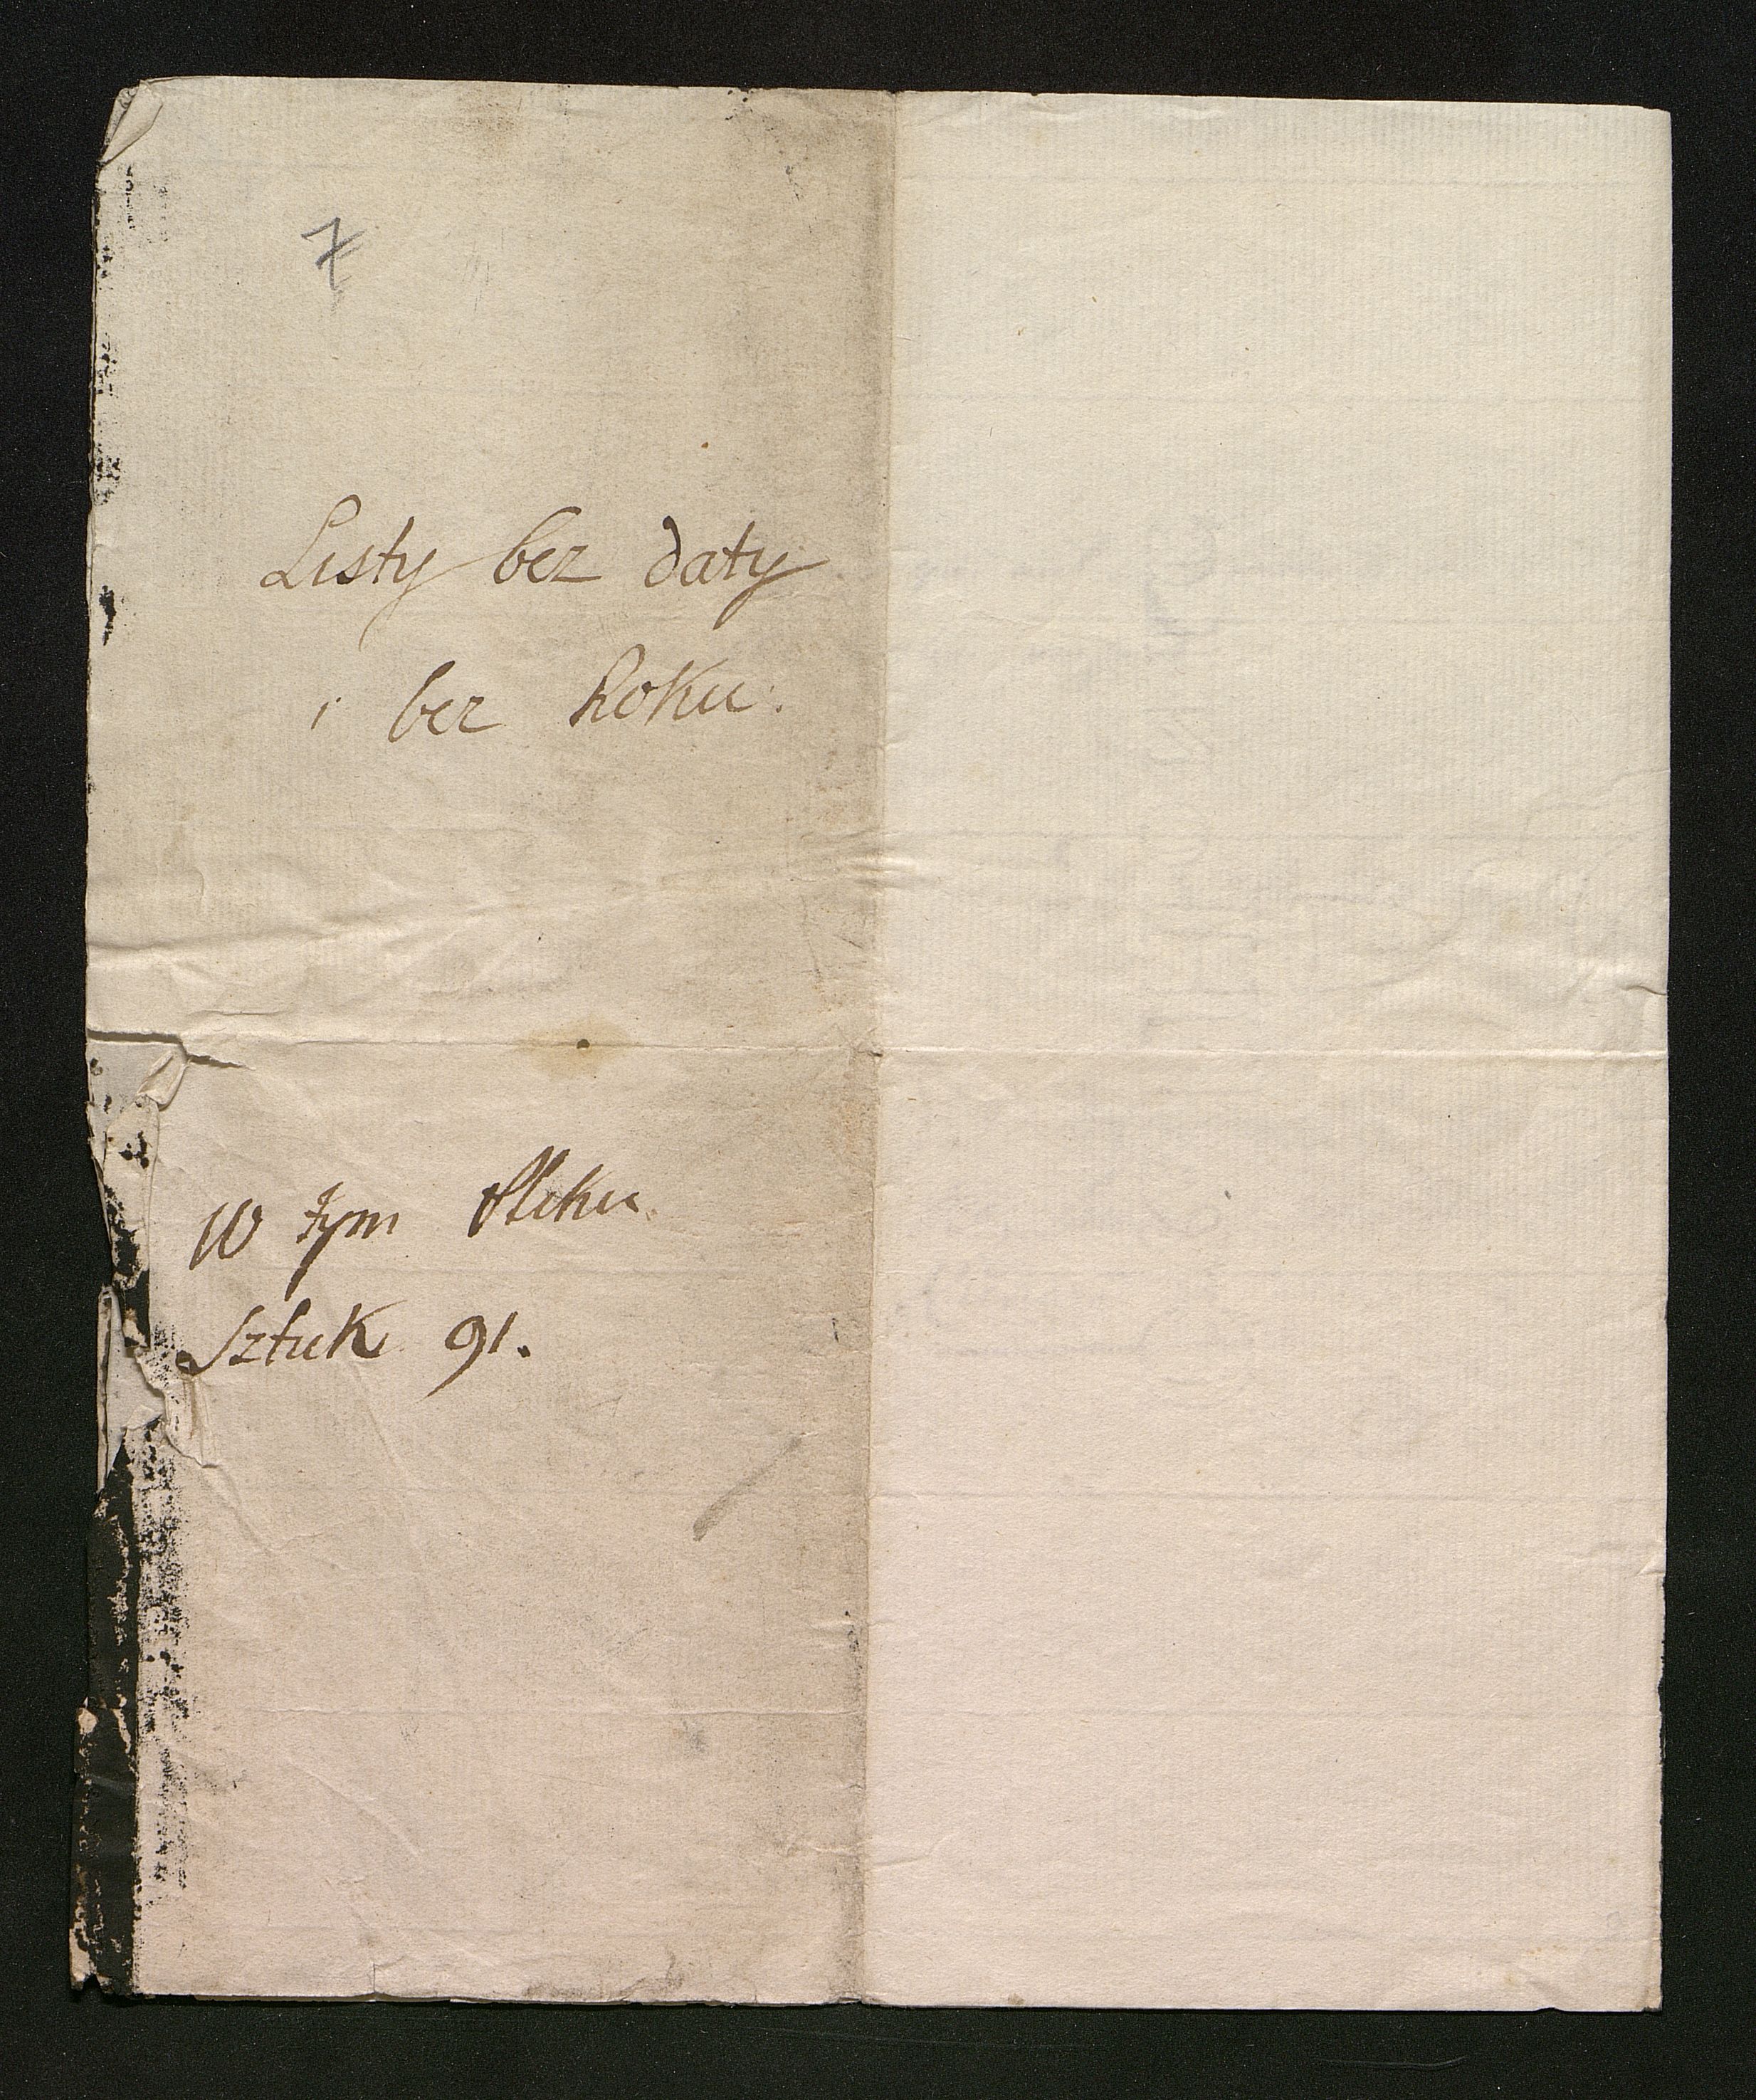 7
Listy bez daty
i bez Roku.
W tym Pliku
Sztuk 91.